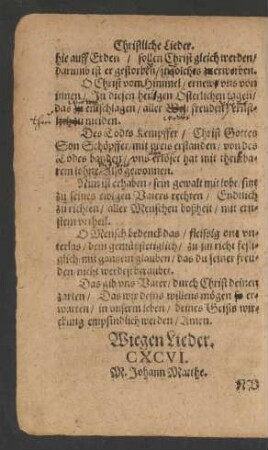 Christliche Lieder.
hie auff Erden / sollen Christ gleich werden /
darumb ist er gestorben / solches zu erwerben.
O Christ vom Himmel / ernew uns von
innen / In diesen heiligen Osterlichen tagen /
das zu entschlagen / aller freuden /
meiden.
Des Todts Kempffer / Christ Gottes
Son Schöpffer / mit preis erstanden / von des
Todes banden / uns erlöset hat mit theilhaf-
tem lohne / Also gewonnen.
Nun ist erhaben / sein gewalt mit lobe / sitzt
zu seines ewigen Vaters rechten / Endlich
zu richten / aller Menschen boßheit / mit ern-
stem urtheil.
O Mensch bedenck das / fleissig one unter-
las / dein gemüt zeitiglich / zu im richt fest-
iglich / mit gantzem glauben / das du seiner freu-
den / nicht werdest beraubet.
Das gib uns Vater / durch Christ deinen
zarten / Das wir deins willens mögen er-
warten / in unserm leben / deines Geists wir-
ckung empfindlich werden / Amen.
Wiegen Lieder.
CXCVI.
M. Johann Matthe.